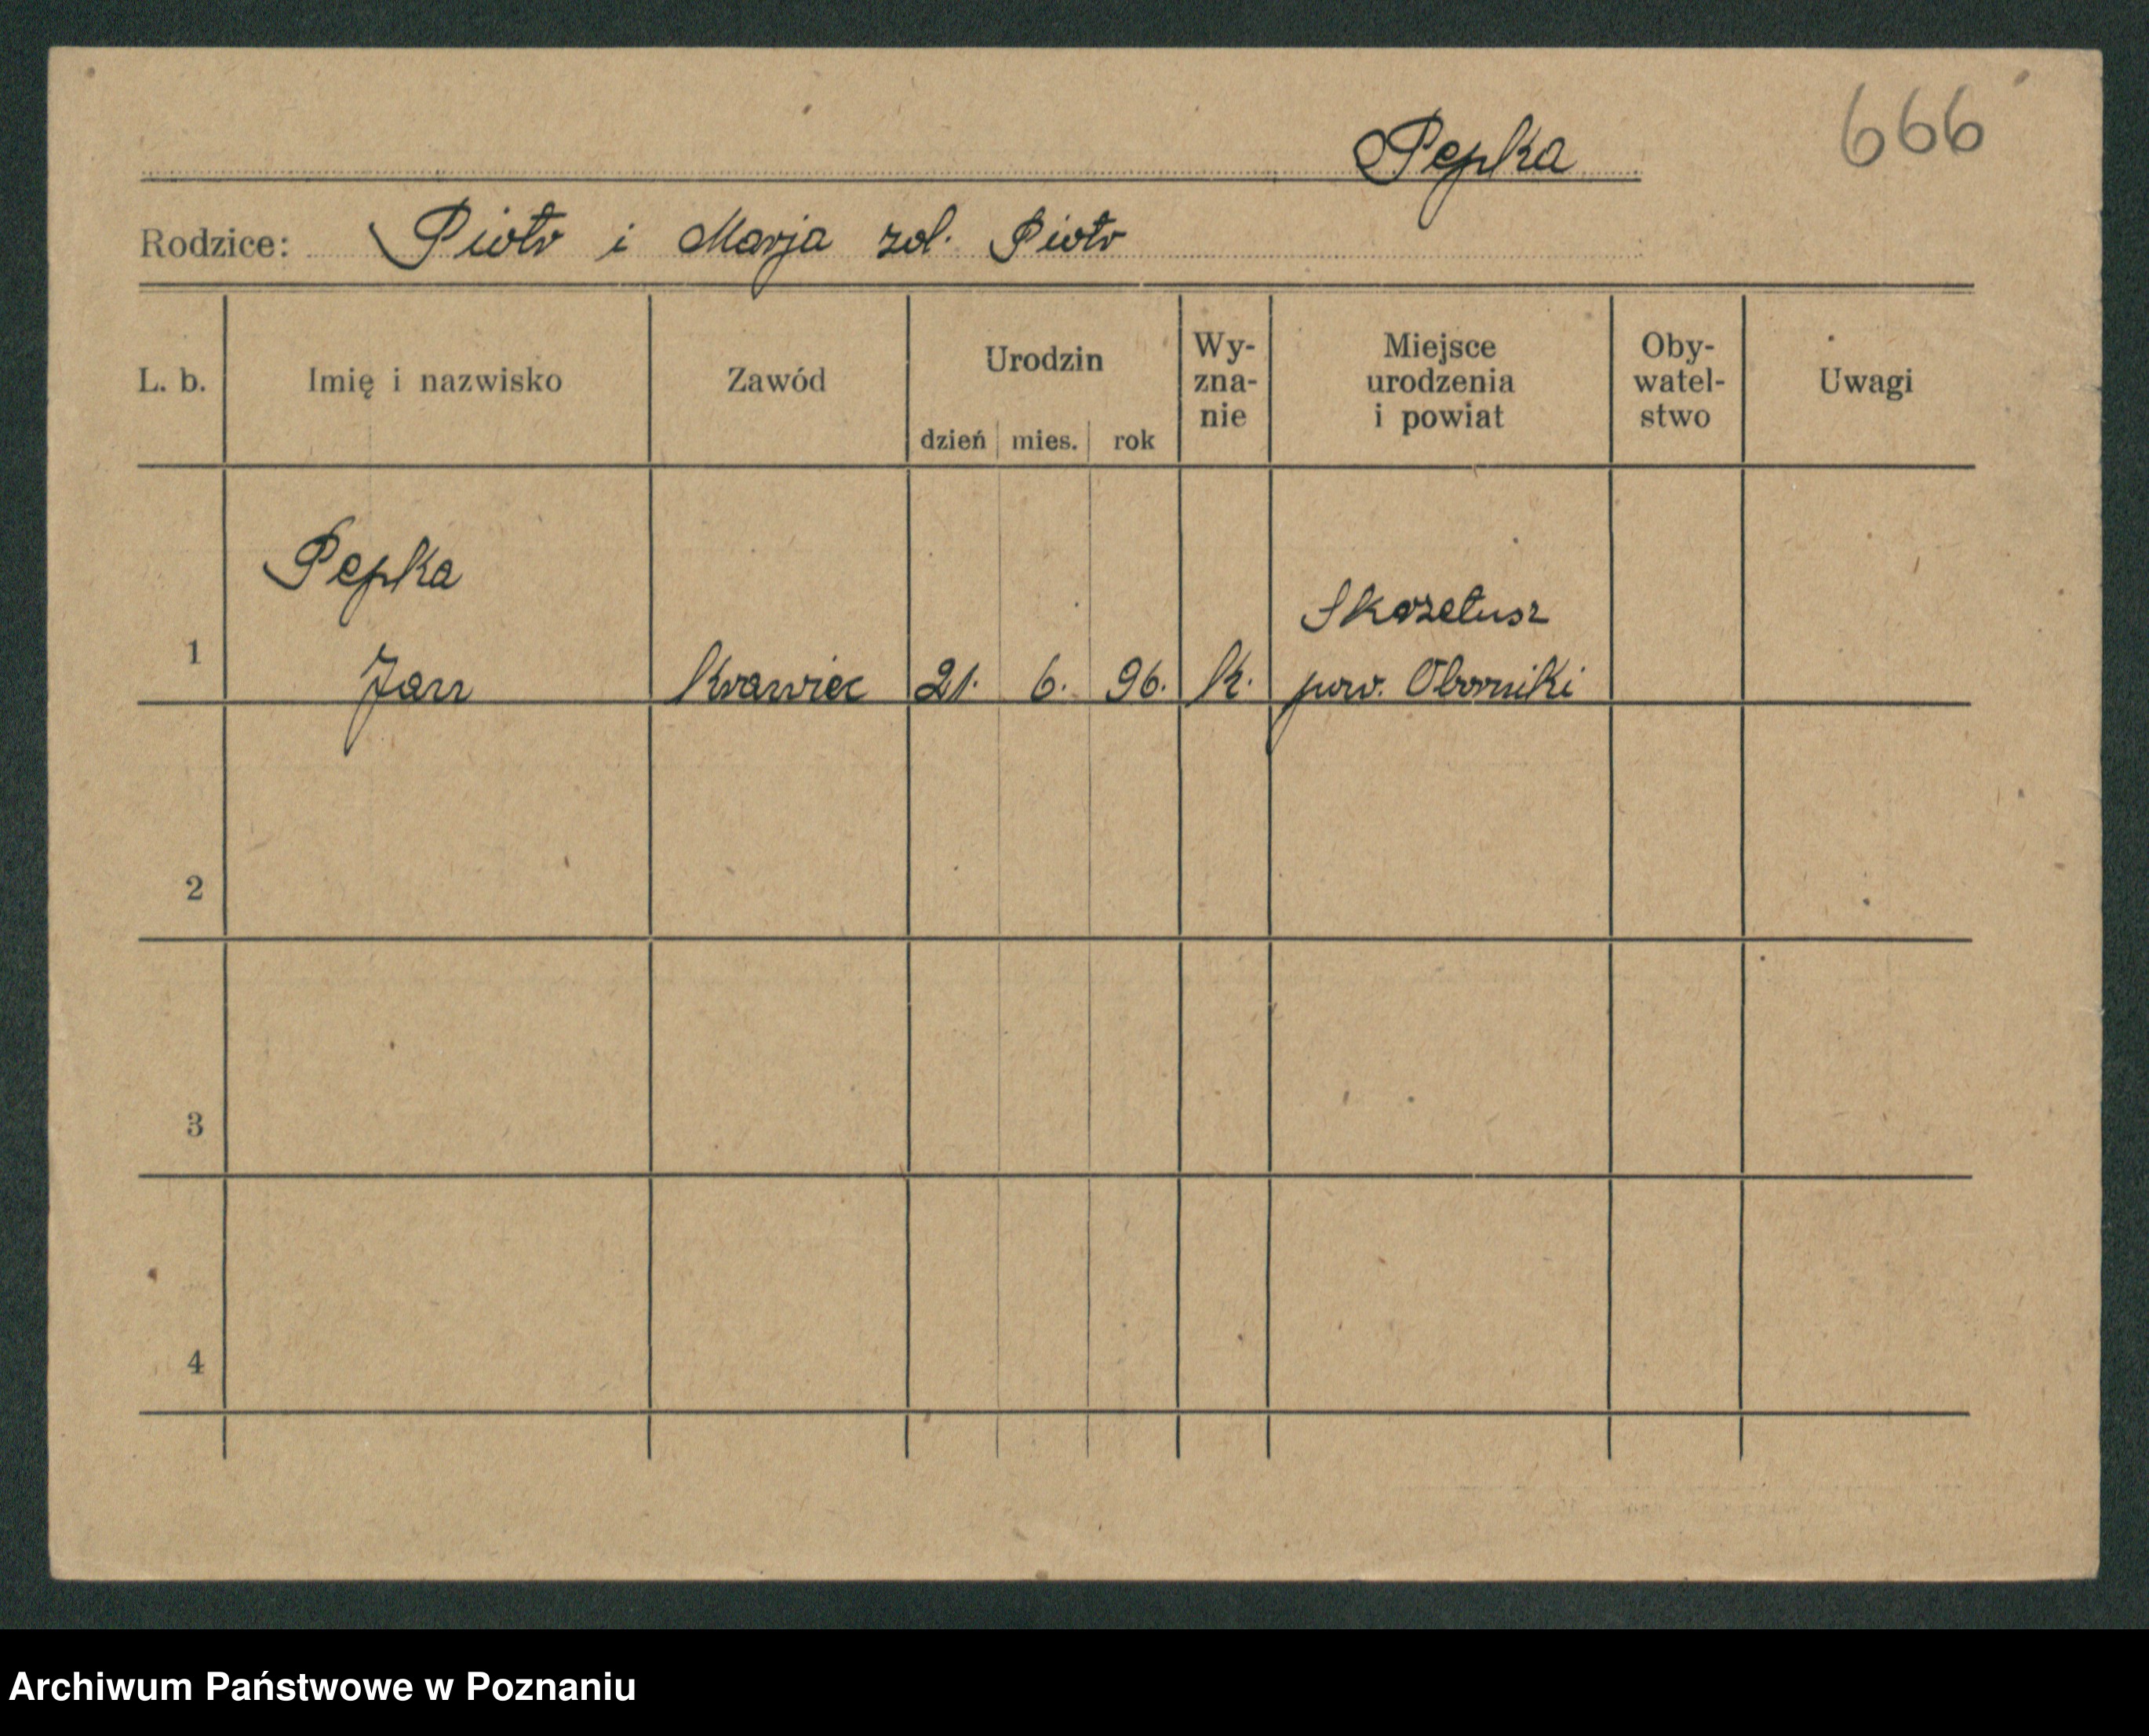 666
Pepka
Rodzice: Piotr i Marja zol. Piotr
L. b. Imię i nazwisko Zawód Urodzin dzień mies. rok Wy-zna-nie Miejsce urodzenia i powiat Oby-watel-stwo Uwagi
Pepka Skrzetusz
1 Jan Krawiec 21. 6. 96. k. pow. Oborniki
2
3
4
Archiwum Państwowe w Poznaniu